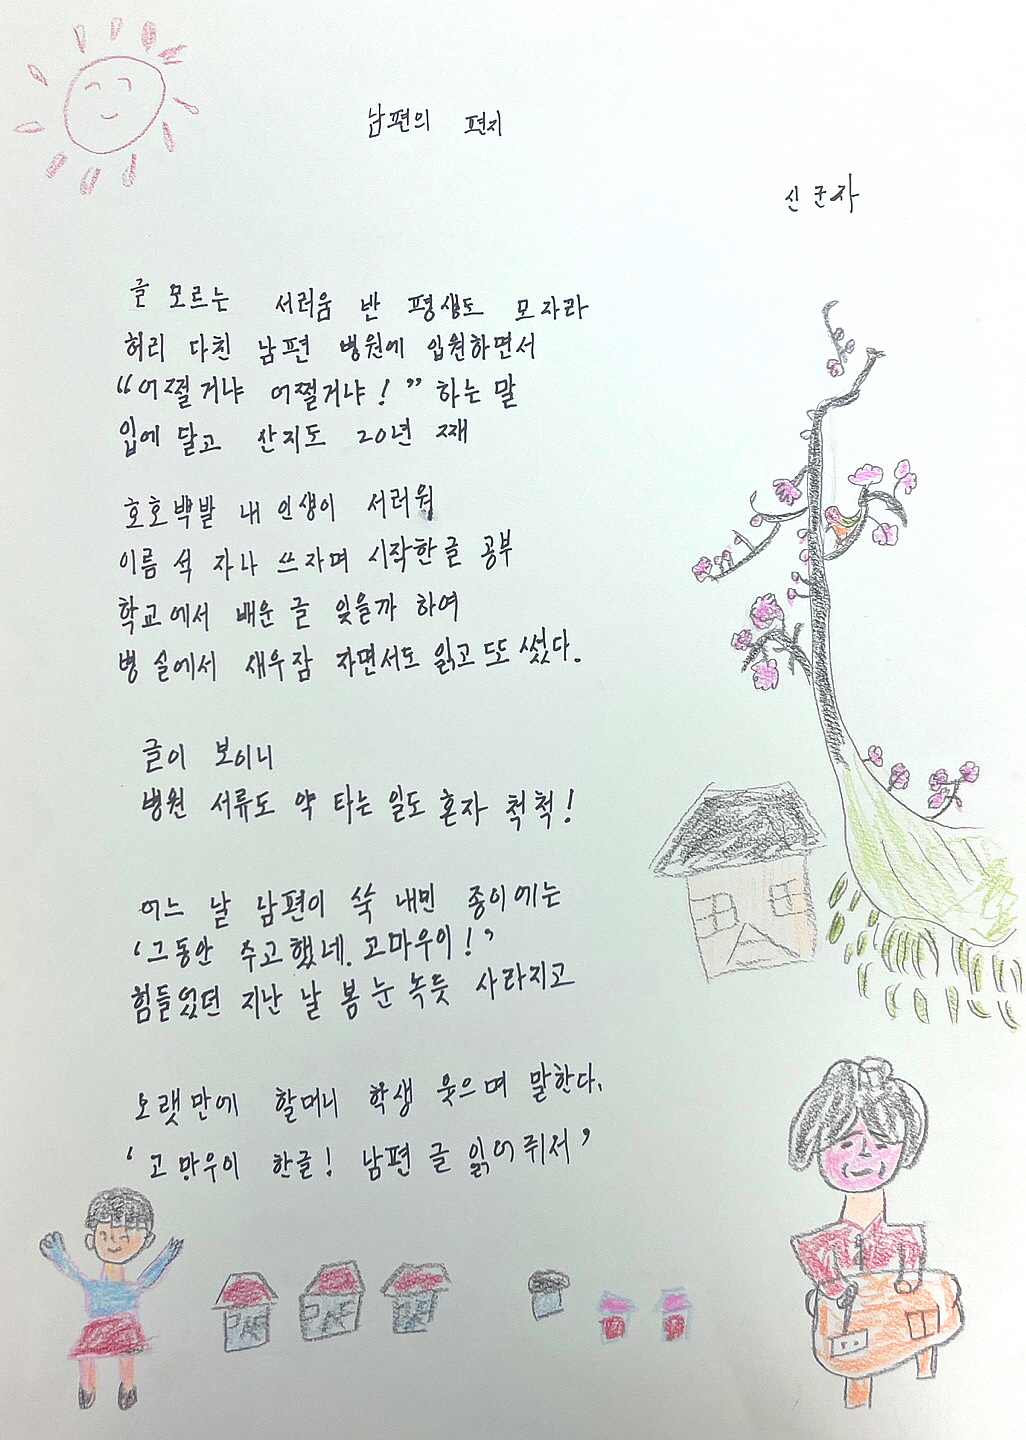 남편의 편지
신군자
글 모르는 서러움 반 평생도 모자라
허리 다친 남편 병원에 입원하면서
“어쩔거냐 어쩔거냐!” 하는 말
입에 달고 산지도 20년 째
호호백발 내 인생이 서러워
이름 석 자나 쓰자며 시작한 글 공부
학교에서 배운 글 잊을까 하여
병실에서 새우잠 자면서도 읽고 또 썼다.
글이 보이니
병원 서류도 약 타는 일도 혼자 척척!
어느 날 남편이 쑥 내민 종이에는
‘그동안 수고했네. 고마우이!’
힘들었던 지난 날 봄 눈 녹듯 사라지고
오랫만에 할머니 학생 웃으며 말한다.
‘고마우이 한글! 남편 글 읽어줘서’